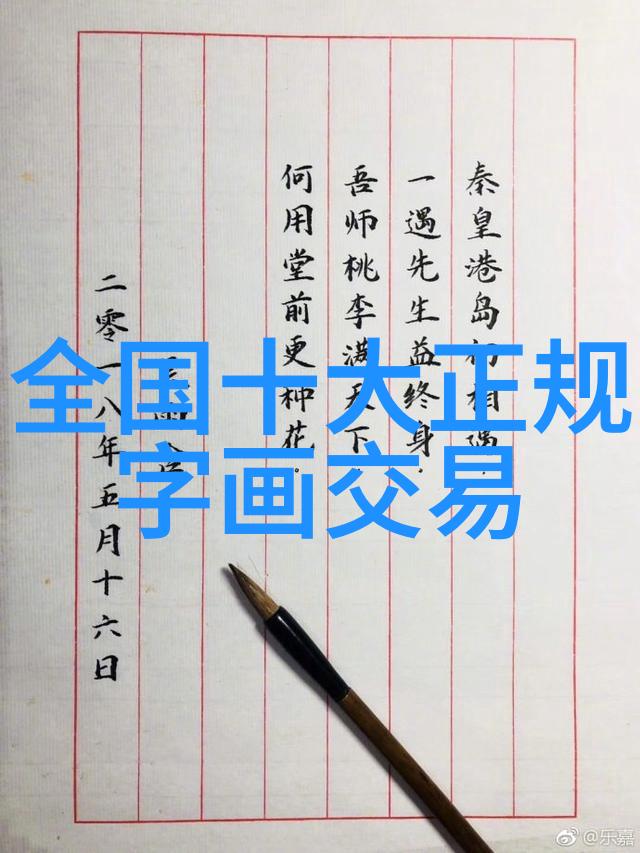 全国十大正规
字画交易
秦皇港岛初相遇，
一遇先生益终身．
吾师桃李满天下，
何用堂前更种花。
二零一八年五月十六日
@乐嘉